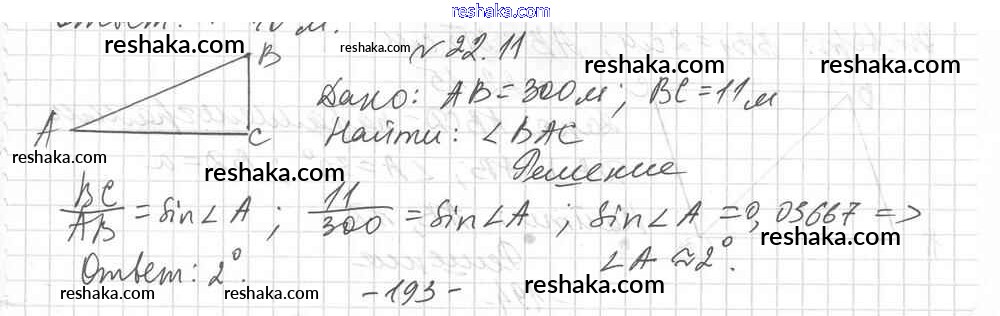 reshaka.com
Ответ: 10 м.
№ 22.11
B
A
C
Дано: AB = 300 м; BC = 11 м
Найти: ∠BAC
Решение
BC/AB = sin∠A; 11/300 = sin∠A; sin∠A = 0,03667 =>
∠A ≈ 2°.
Ответ: 2°.
- 193 -
reshaka.com
reshaka.com
reshaka.com
reshaka.com
reshaka.com
reshaka.com
reshaka.com
reshaka.com
reshaka.com
reshaka.com
reshaka.com
reshaka.com
reshaka.com